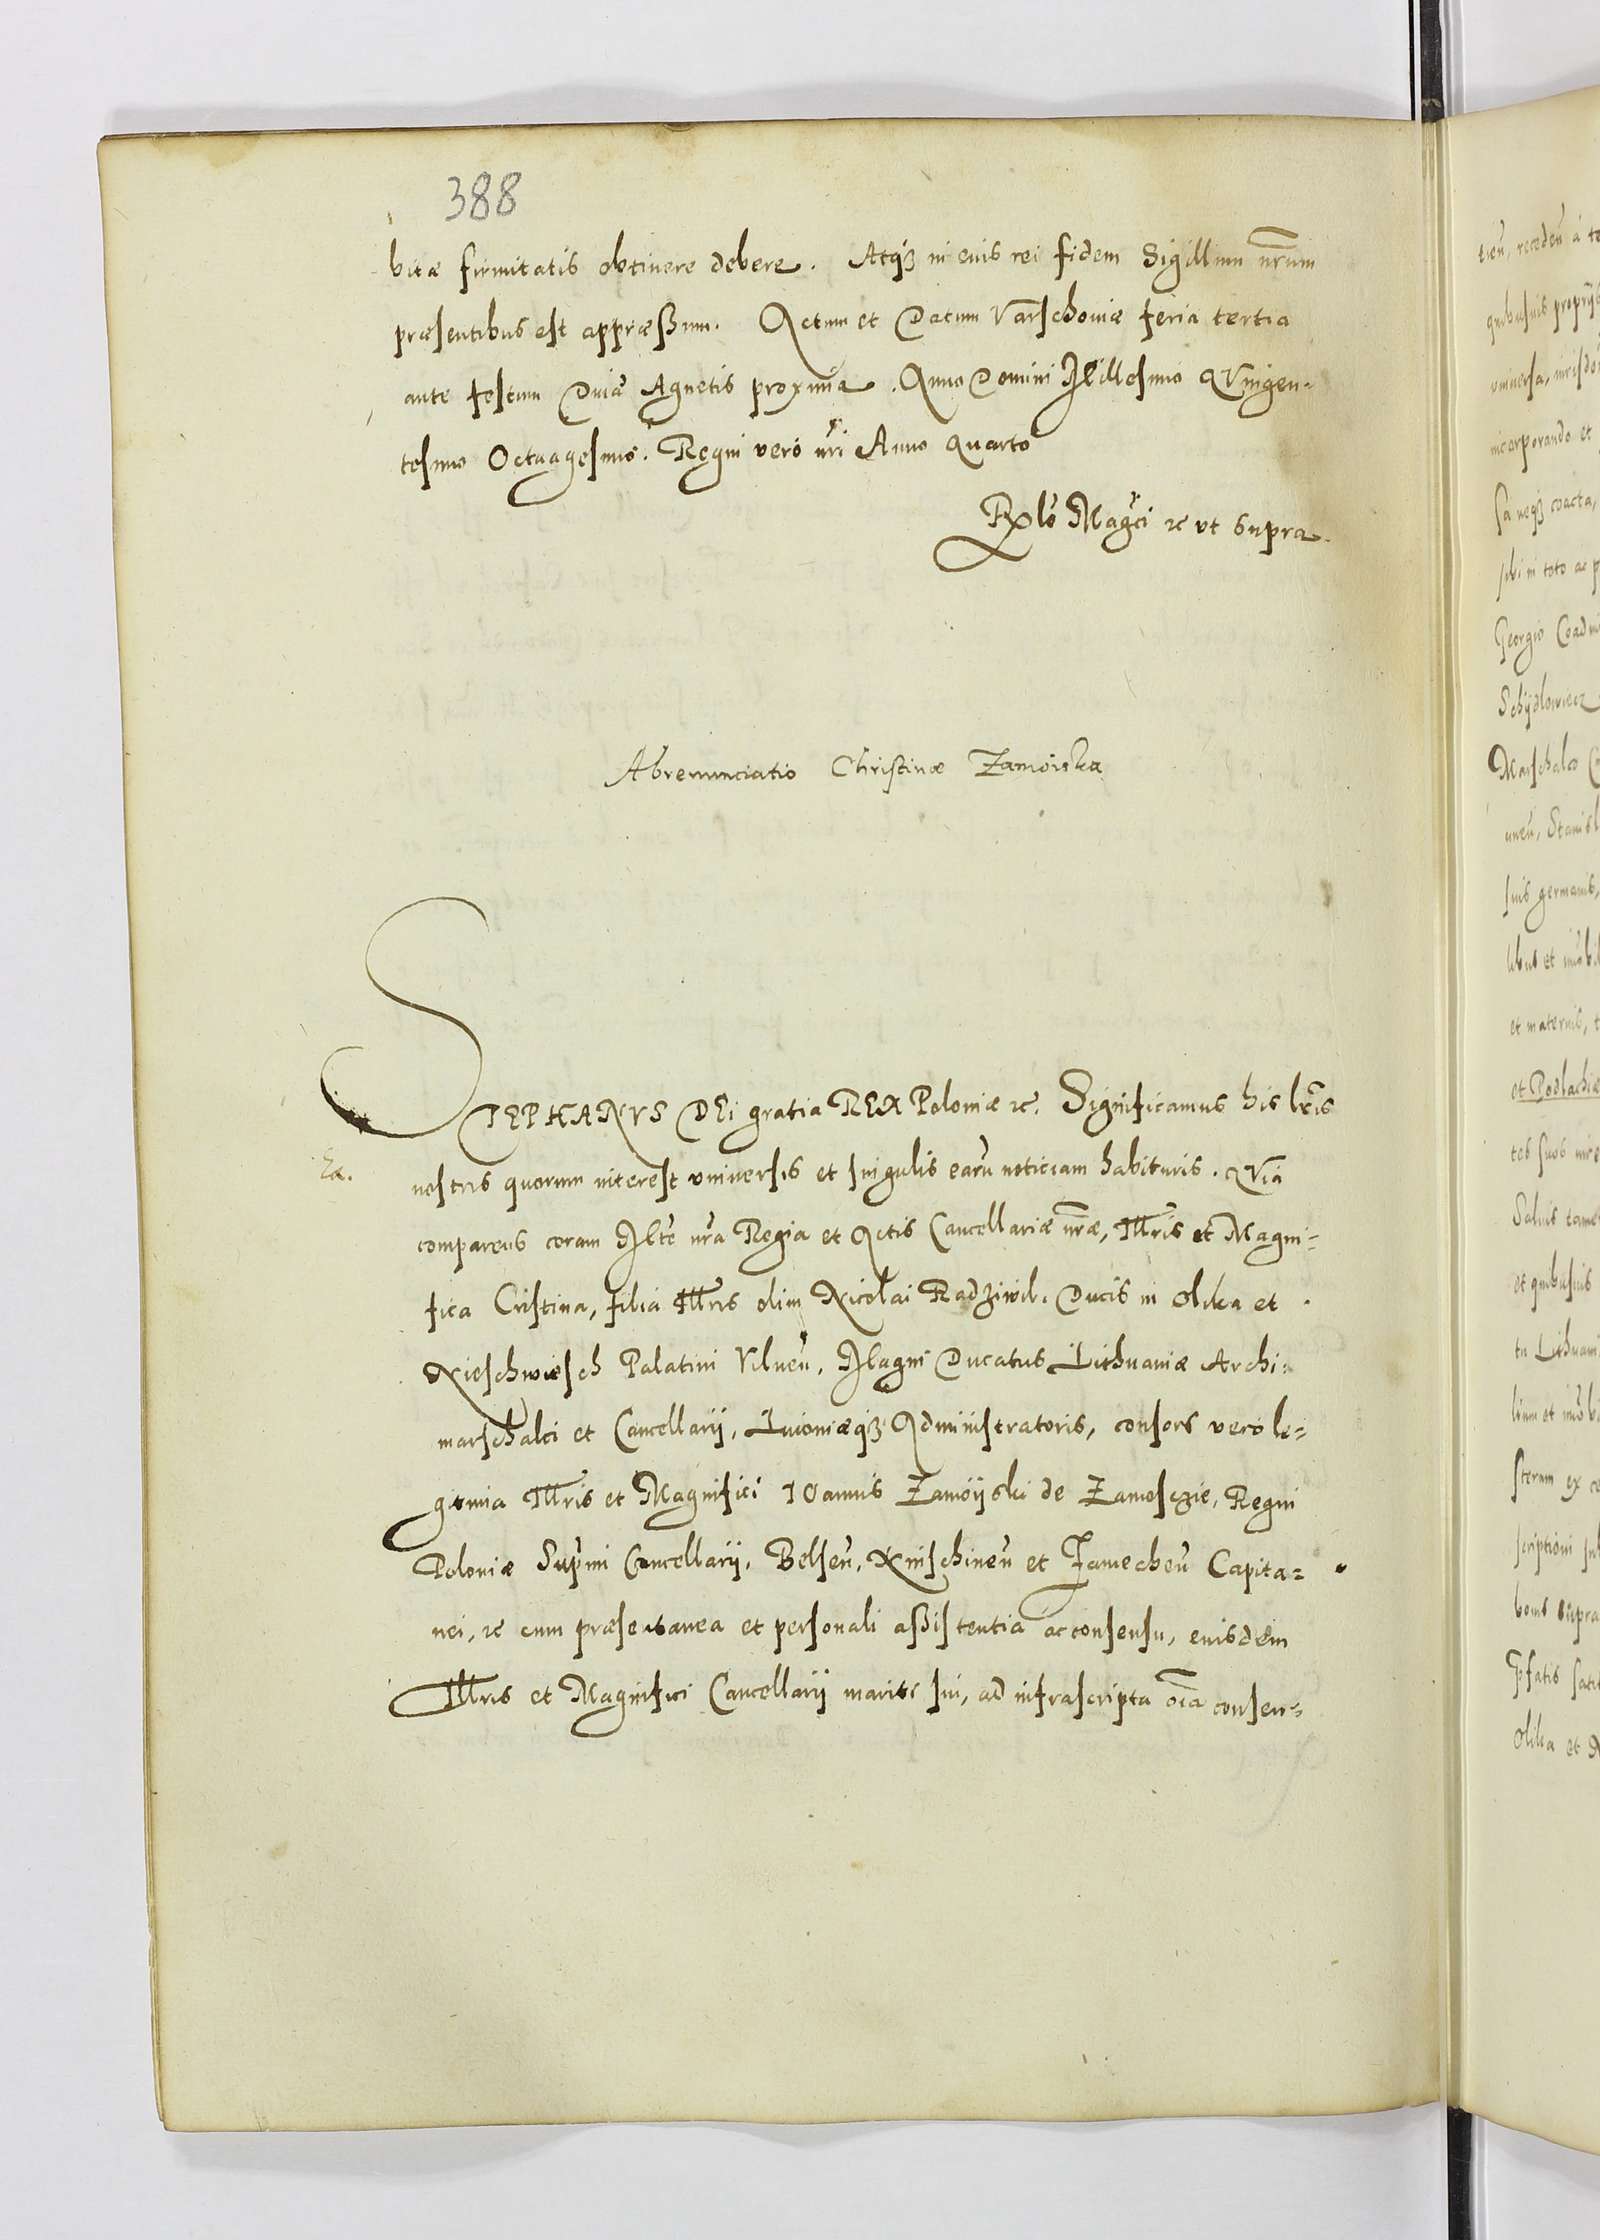 388
bitæ firmitatis obtinere debere. Atqꝫ in cuius rei fidem Sigillum nrum
præsentibus est appræssum. Actum et Datum Varschoviæ feria tertia
ante festum Diuæ Agnetis proxima. Anno Domini Millesimo Quingen-
tesimo Octuagesimo. Regni vero nri Anno quarto
Rlo Magci ꝛc vt supra.
Abrenunciatio Christinæ Zamoiska
STEPHANVS DEi gratia REX Poloniæ ꝛc. Significamus his lris
nostris quorum interest vniuersis et singulis earu noticiam habituris. Quia
comparens coram Mte nra Regia et Actis Cancellariæ nræ, Illris et Magni-
fica Cristina, filia Illris olim Nicolai Radziwil. Ducis in Olika et
Nieschwiesch Palatini Vilnen. Magni Ducatus Lithuaniæ Archi-
marschalci et Cancellarij, Liuoniæqꝫ Administratoris, consors vero le-
gitmia Illris et Magnifici Ioannis Zamoijski de Zamosczie, Regni
Poloniæ Supmi Cancellarij. Belsen. Knischinen et Jamechen Capita-
nei, ꝛc cum præsentanea et personali assistentia ac consensu, eiusdem
Illris et Magnifici Cancellarij mariti sui, ad infrascripta oia consen-
tien, receden a
quibusuis proprijs
vniuersa, iurisdon
incorporando et
sa neqꝫ coacta,
sibi in toto ac
Georgio
Schijdlowiecz
Marschalco
Stanisl
suis germanis,
libus et
et maternis,
et Podlachiæ
tes suos
Saluis tamen
et quibusuis
tu Lithuani
lium et
ex
scriptioni
bonis supra
pfatis
Olika et